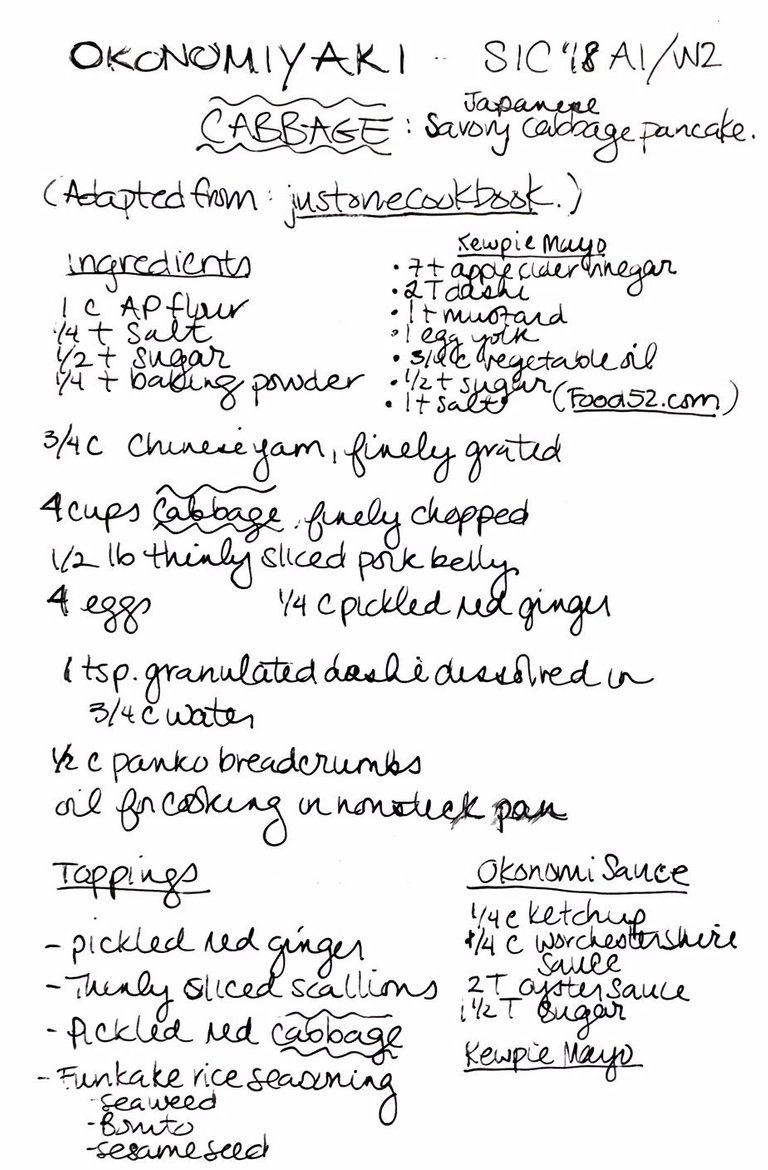 OKONOMIYAKI .. SIC '18 A1/W2
CABBAGE : Japanese Savory cabbage pancake.
(Adapted from: justonecookbook.)
Ingredients
1 c AP flour
1/4 t Salt
1/2 t sugar
1/4 t baking powder
Kewpie Mayo
• 7t apple cider vinegar
• 2T dashi
• 1t mustard
• 1 egg yolk
• 3/4 c vegetable oil
• 1/2 t sugar
• 1t salt (Food52.com)
3/4 c Chinese yam, finely grated
4 cups Cabbage, finely chopped
1/2 lb thinly sliced pork belly
4 eggs 1/4 c pickled red ginger
1 tsp. granulated dashi dissolved in
3/4 c water
1/2 c panko breadcrumbs
oil for cooking in nonstick pan
Toppings
- pickled red ginger
- Thinly sliced scallions
- Pickled red cabbage
- Funkake rice seasoning
- seaweed
- Bonito
- sesame seed
Okonomi Sauce
1/4 c ketchup
1/4 c worchestershire
sauce
2T oyster sauce
1 1/2 T sugar
Kewpie Mayo